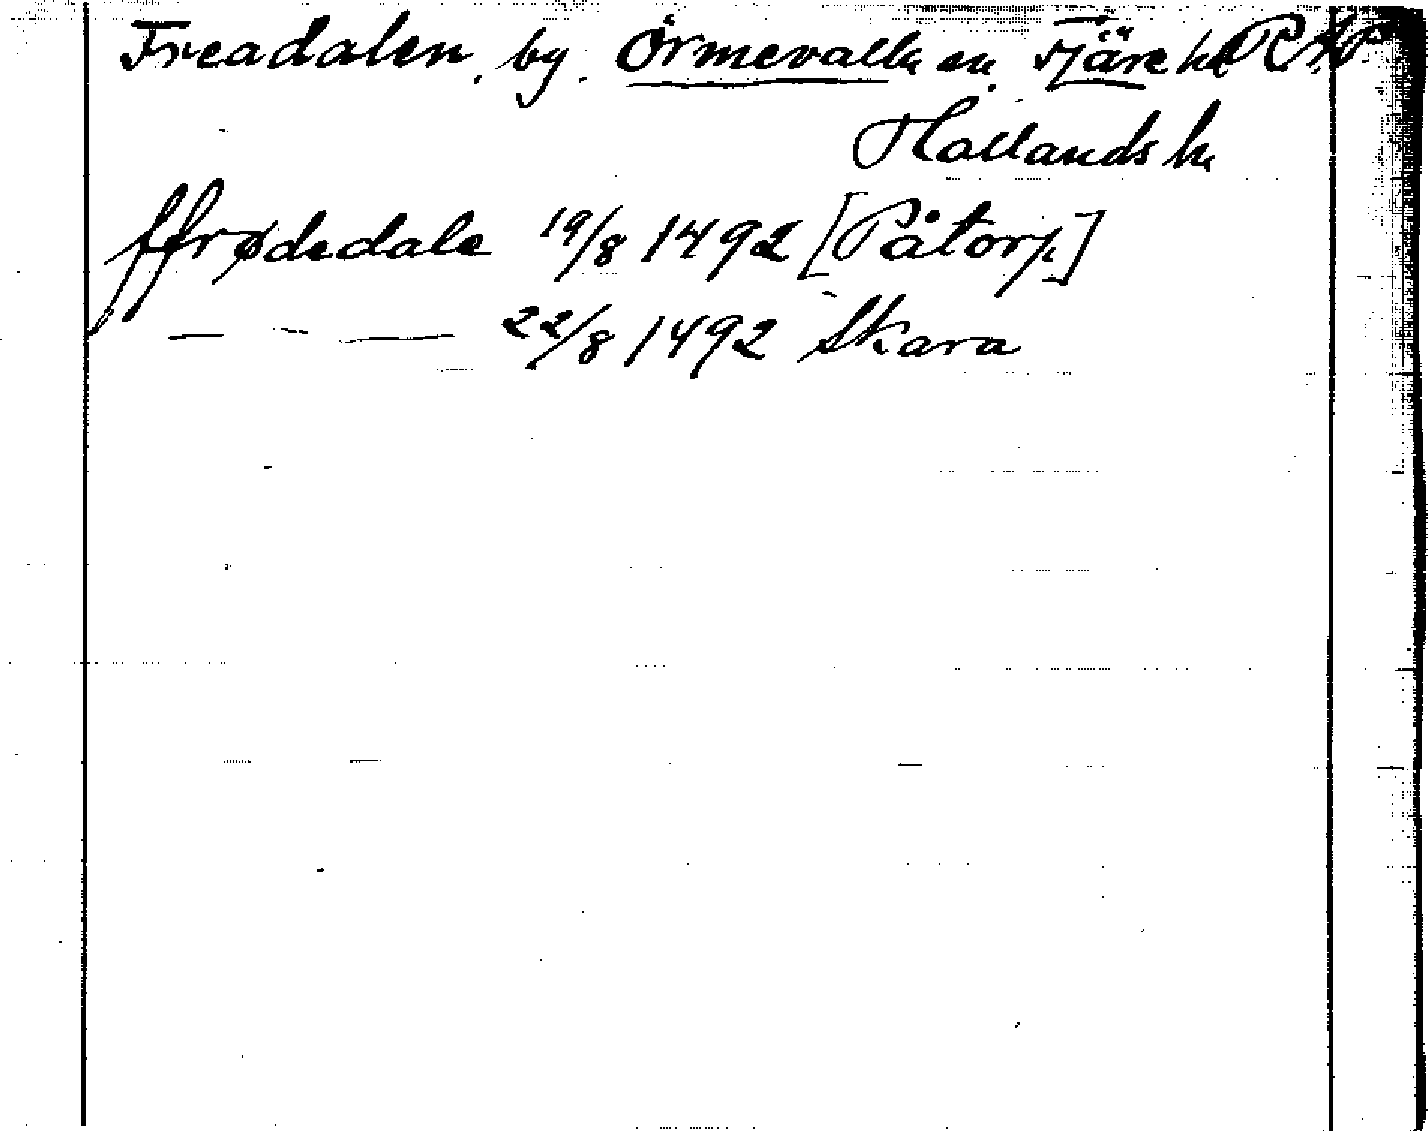 Freadalen, by. Örmevalla sn. Fjäre hd
Hallands ln
ffrødedale 19/8 1492 [Påtorp]
— — — 22/8 1492 Skara